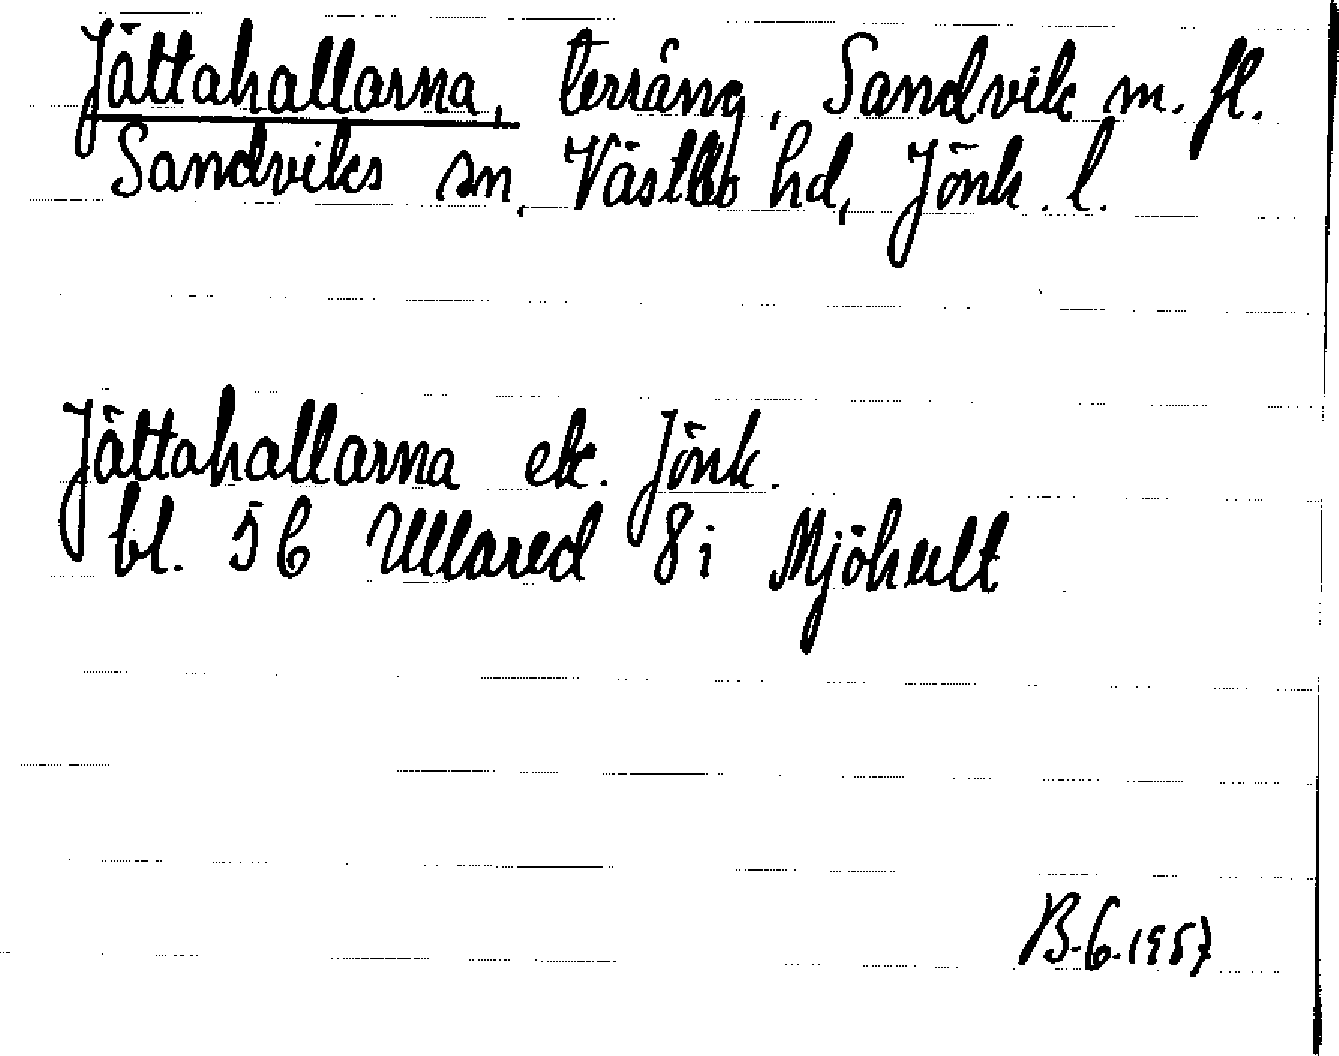 Jättahallarna, terräng, Sandvik m. fl.
Sandviks sn, Västbo hd, Jönk. l.
Jättahallarna ek. Jönk.
bl. 5 C Ullared 8 i Mjöhult
B.G. 1957